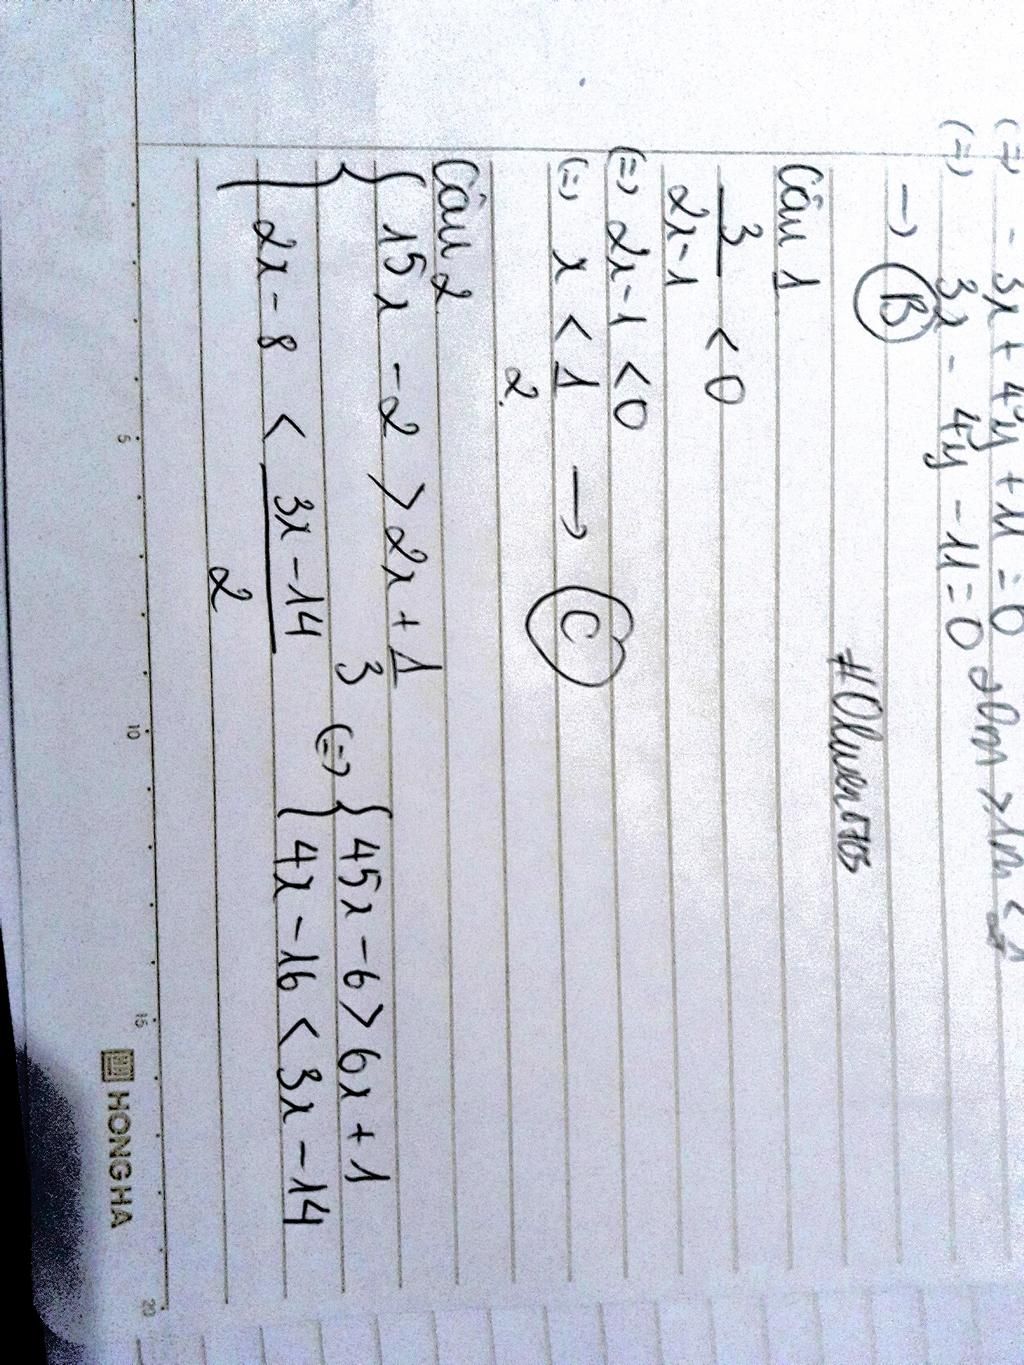 (=) - 3x + 4y + 11 = 0
(=) 3x - 4y - 11 = 0
→ B
Câu 1
3/(2x-1) < 0
(=) 2x - 1 < 0
(=) x < 1/2 → C
Câu 2
{ 15x - 2 > 2x + 1/3
{ 2x - 8 < (3x - 14)/2
(=) { 45x - 6 > 6x + 1
{ 4x - 16 < 3x - 14
5 10 15 20
HONG HA